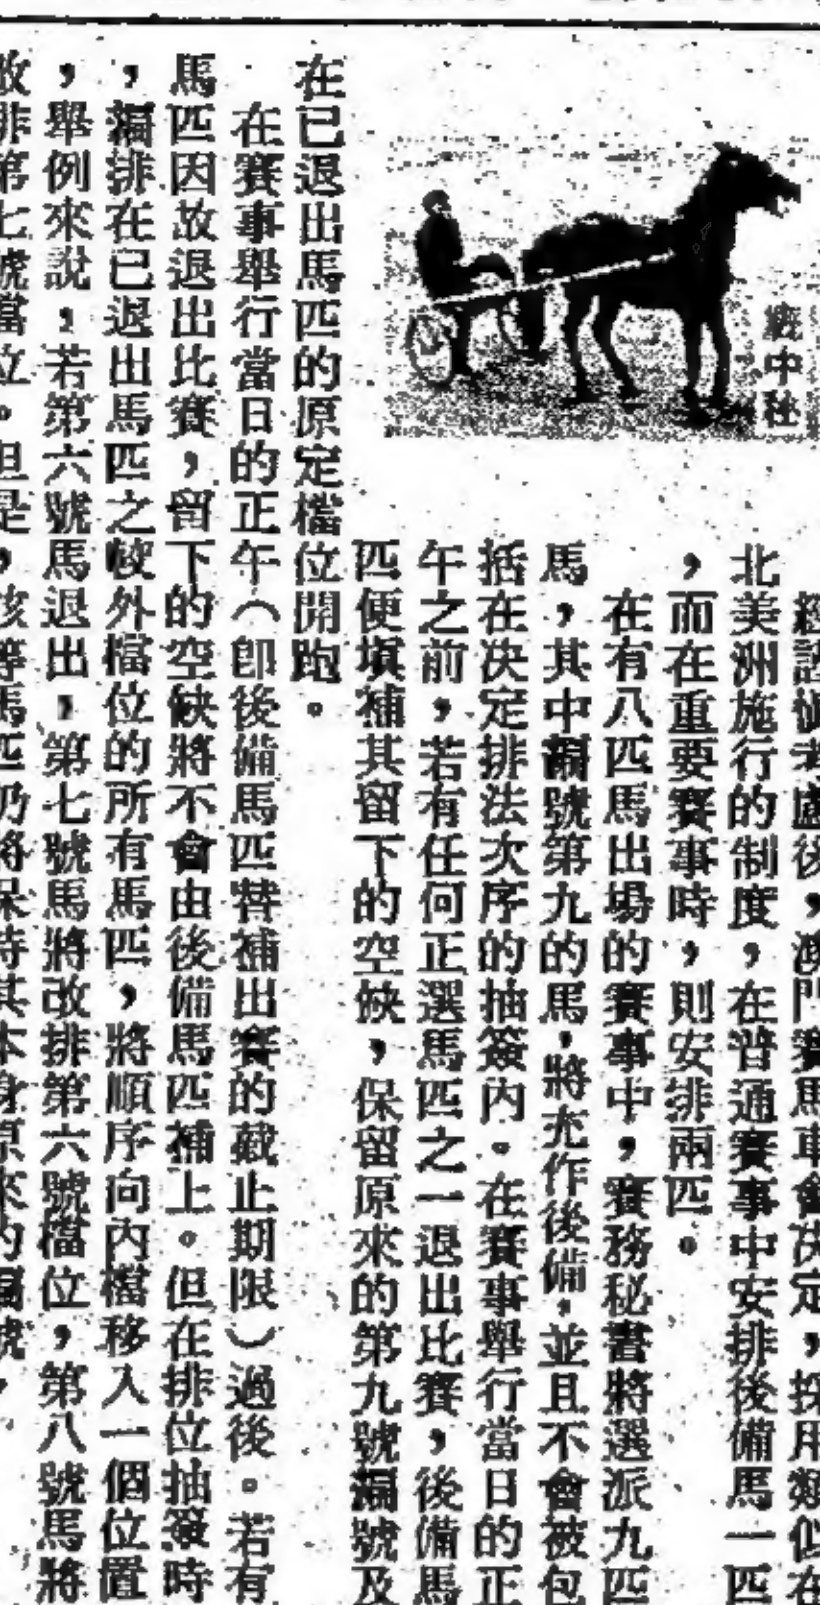 經謹慎考慮後，澳門賽馬車會决定，採用類似在
北美洲施行的制度，在普通賽事中安排後備馬一匹
，而在重要賽事時，則安排兩匹。
在有八匹馬出場的賽事中，賽務秘書將選派九匹
馬，其中編號第九的馬，將充作後備，並且不會被包
括在决定排法次序的抽簽內。在賽事舉行當日的正
午之前，若有任何正選馬匹之一退出比賽，後備馬
匹便塡補其留下的空缺，保留原來的第九號編號及
在已退出馬匹的原定檔位開跑。
在賽事舉行當日的正午（卽後備馬匹替補出賽的截止期限）過後。若有
馬匹因故退出比賽，留下的空缺將不會由後備馬匹補上。但在排位抽簽時
，編排在已退出馬匹之較外檔位的所有馬匹，將順序向內檔移入一個位置
，舉例來說，若第六號馬退出，第七號馬將改排第六號檔位，第八號馬將
改排第七號檔位。但是，該等馬匹仍將保持其本身原來的編號，